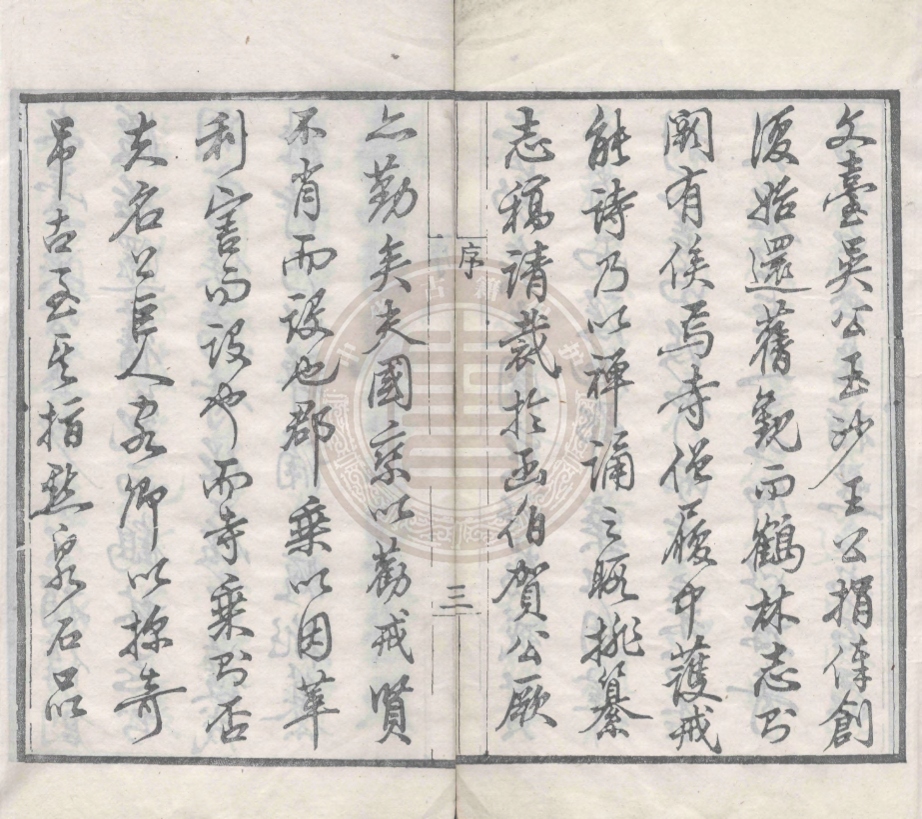 文臺吳公玉沙王公捐俸創
復始還舊觀而鶴林志則
闕有俟焉寺僧履中護戒
能詩乃以禪誦之暇排纂
志稿請裁於函伯賀公厥
序
三
亦勤矣夫國乘以勸戒賢
不肖而設也郡乘以因革
利害而設也而寺乘則否
夫名公巨人客卿以探奇
弔古至其指點泉石品